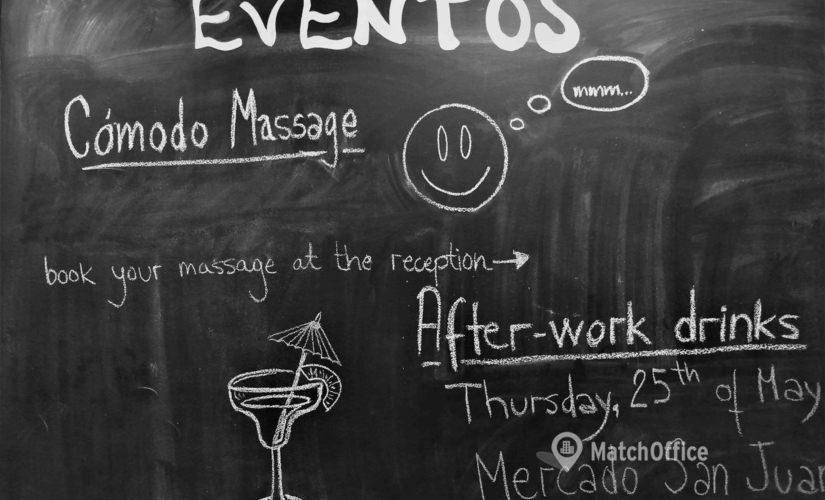 EVENTOS
mmm...
Cómodo Massage
book your massage at the reception→
After-work drinks
Thursday, 25th of May
MatchOffice
Mercado San Juan